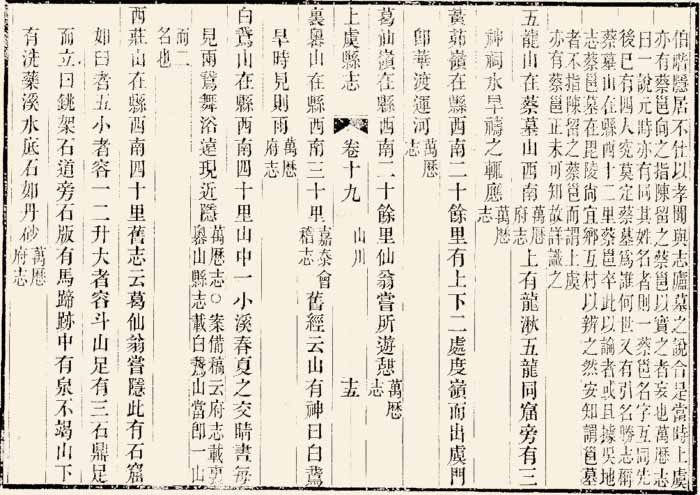 伯喈隱居不仕以孝聞與志廬墓之說合是當時上虞
亦有蔡邕向之指陳留之蔡邕以實之者妄也萬歷志
曰一說元時亦有同其姓名者則一蔡邕名字互同先
後已有四人究莫定蔡墓為誰何世又有引名勝志稱
蔡墓山在縣西十二里蔡邕卒此以論者或且據吳地
志蔡邕墓在毘陵尚宜鄉互村以辨之然安知謂邕墓
者不指陳留之蔡邕而謂上虞
亦有蔡邕正未可知故詳識之
五龍山在蔡墓山西南萬歷府志上有龍湫五龍同窟旁有三
神祠水旱禱之輒應萬歷志
黃茆嶺在縣西南二十餘里有上下二處度嶺而出虞門
卽華渡運河萬歷志
葛仙嶺在縣西南二十餘里仙翁嘗所遊憩萬歷志
上虞縣志 卷十九 山川 十五
裏嶴山在縣西南三十里嘉泰會稽志舊經云山有神曰白鵞
旱時見則雨萬歷府志
白鵞山在縣西南四十里山中一小溪春夏之交晴晝每
見兩鵞舞浴遠現近隱萬歷志○案備稿云府志載裏嶴山縣志載白鵞山當卽一山
而二名也
西莊山在縣西南四十里舊志云葛仙翁嘗隱此有石窟
如臼者五小者容一二升大者容斗山足有三石鼎足
而立曰銚架石道旁石版有馬蹄跡中有泉不竭山下
有洗藥溪水底石如丹砂萬歷府志